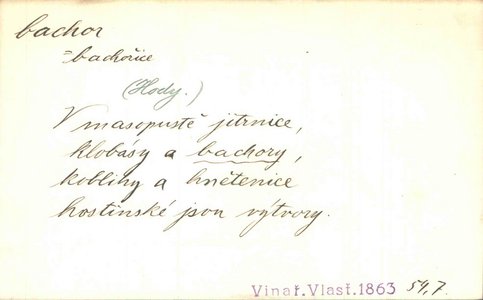 bachor
= bachořice
(Hody.)
V masopustě jitrnice,
klobásy a bachory,
koblihy a hnětenice
hostinské jsou výtvory.
Vinař. Vlast. 1863 54,7.